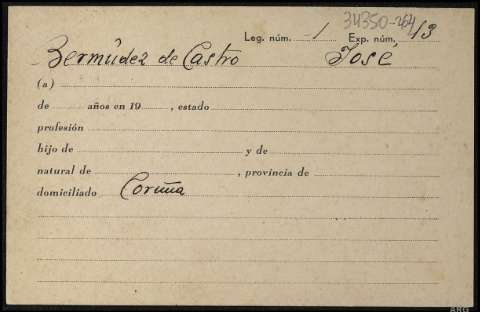 34350-264
Leg. núm. 1 Exp. núm. 13
Bermúdez de Castro José
(a)
de años en 19 , estado
profesión
hijo de y de
natural de , provincia de
domiciliado Coruña
ARG